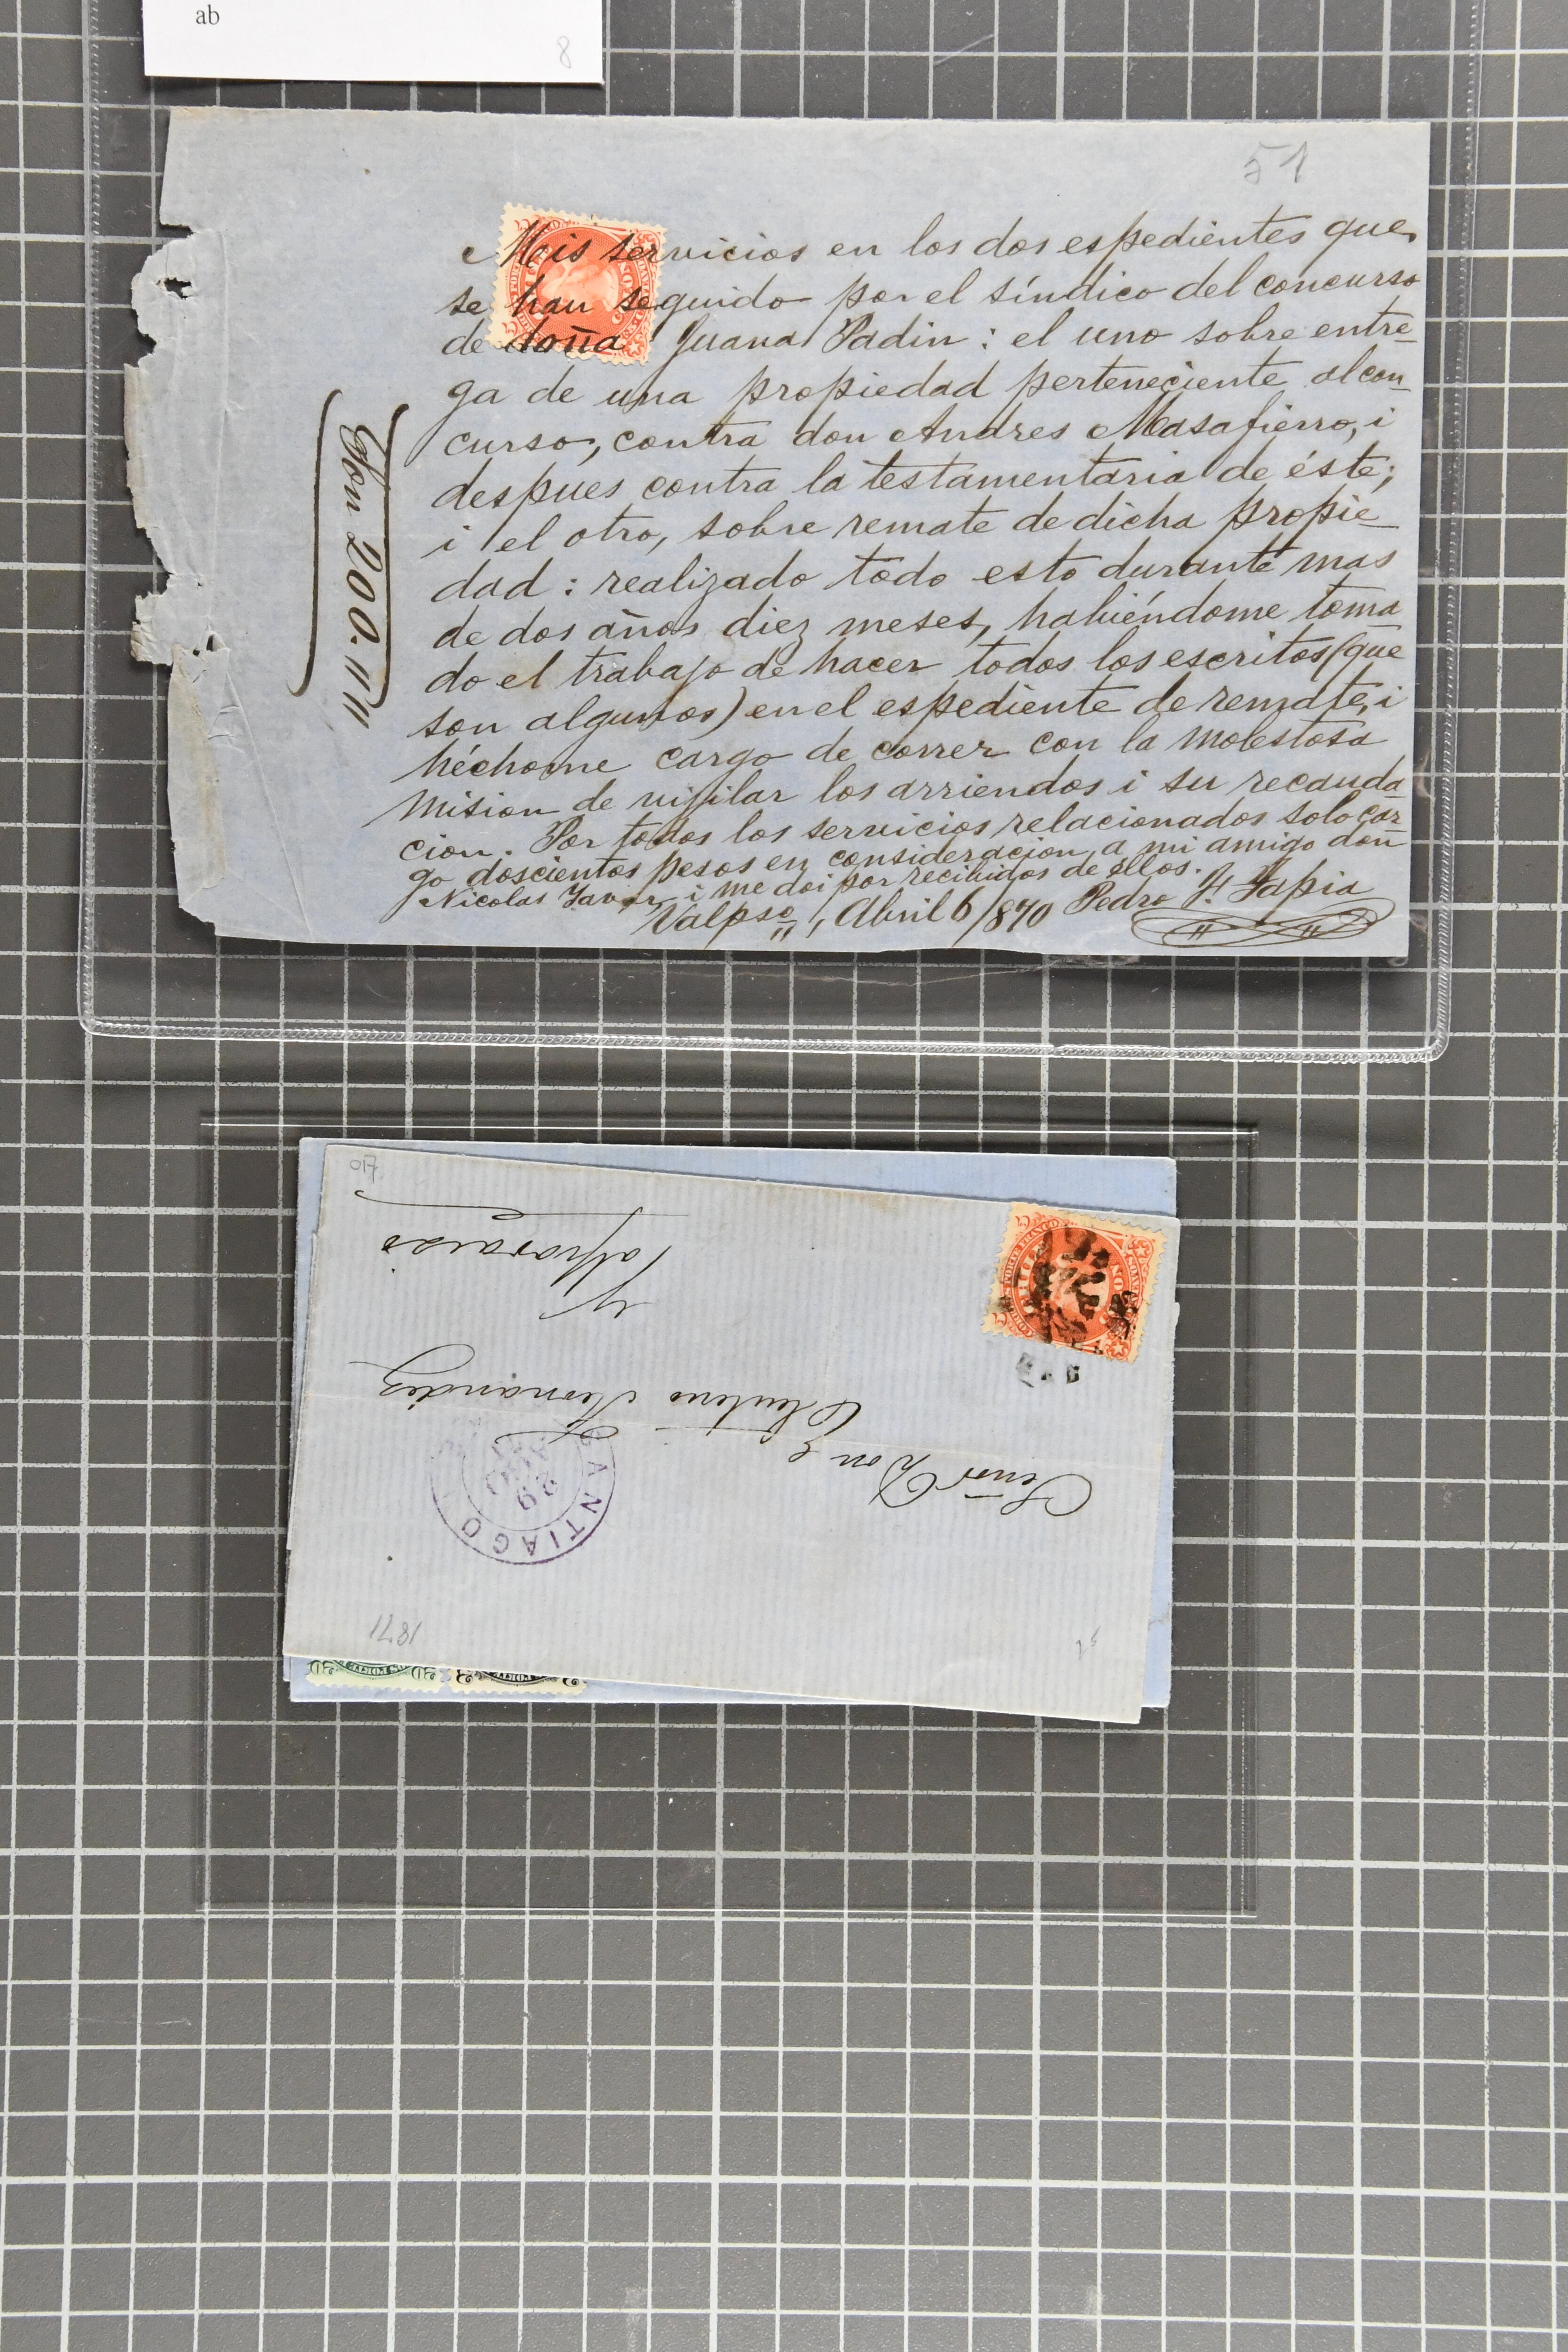 ab
8
51
Mis servicios en los dos espedientes que
se han seguido por el síndico del concurso
de doña Juana Padin: el uno sobre entre-
ga de una propiedad perteneciente al con-
curso, contra don Andres Masafierro, i
despues contra la testamentaria de éste;
i el otro, sobre remate de dicha propie-
dad: realizado todo esto durante mas
de dos años diez meses, habiéndome toma-
do el trabajo de hacer todos los escritos (que
son algunos) en el espediente de remate, i
héchome cargo de correr con la molestosa
mision de vijilar los arriendos i su recauda-
cion. Por todos los servicios relacionados solo car-
go doscientos pesos en consideracion a mi amigo don
Nicolas i me doi por recibidos de ellos.
Valpso, Abril 6/870 Pedro J. Tapia
Son 200.""
Señor Don
Eleuterio Hernandez
Valparaiso
SANTIAGO
29
1871
20 20
2 2